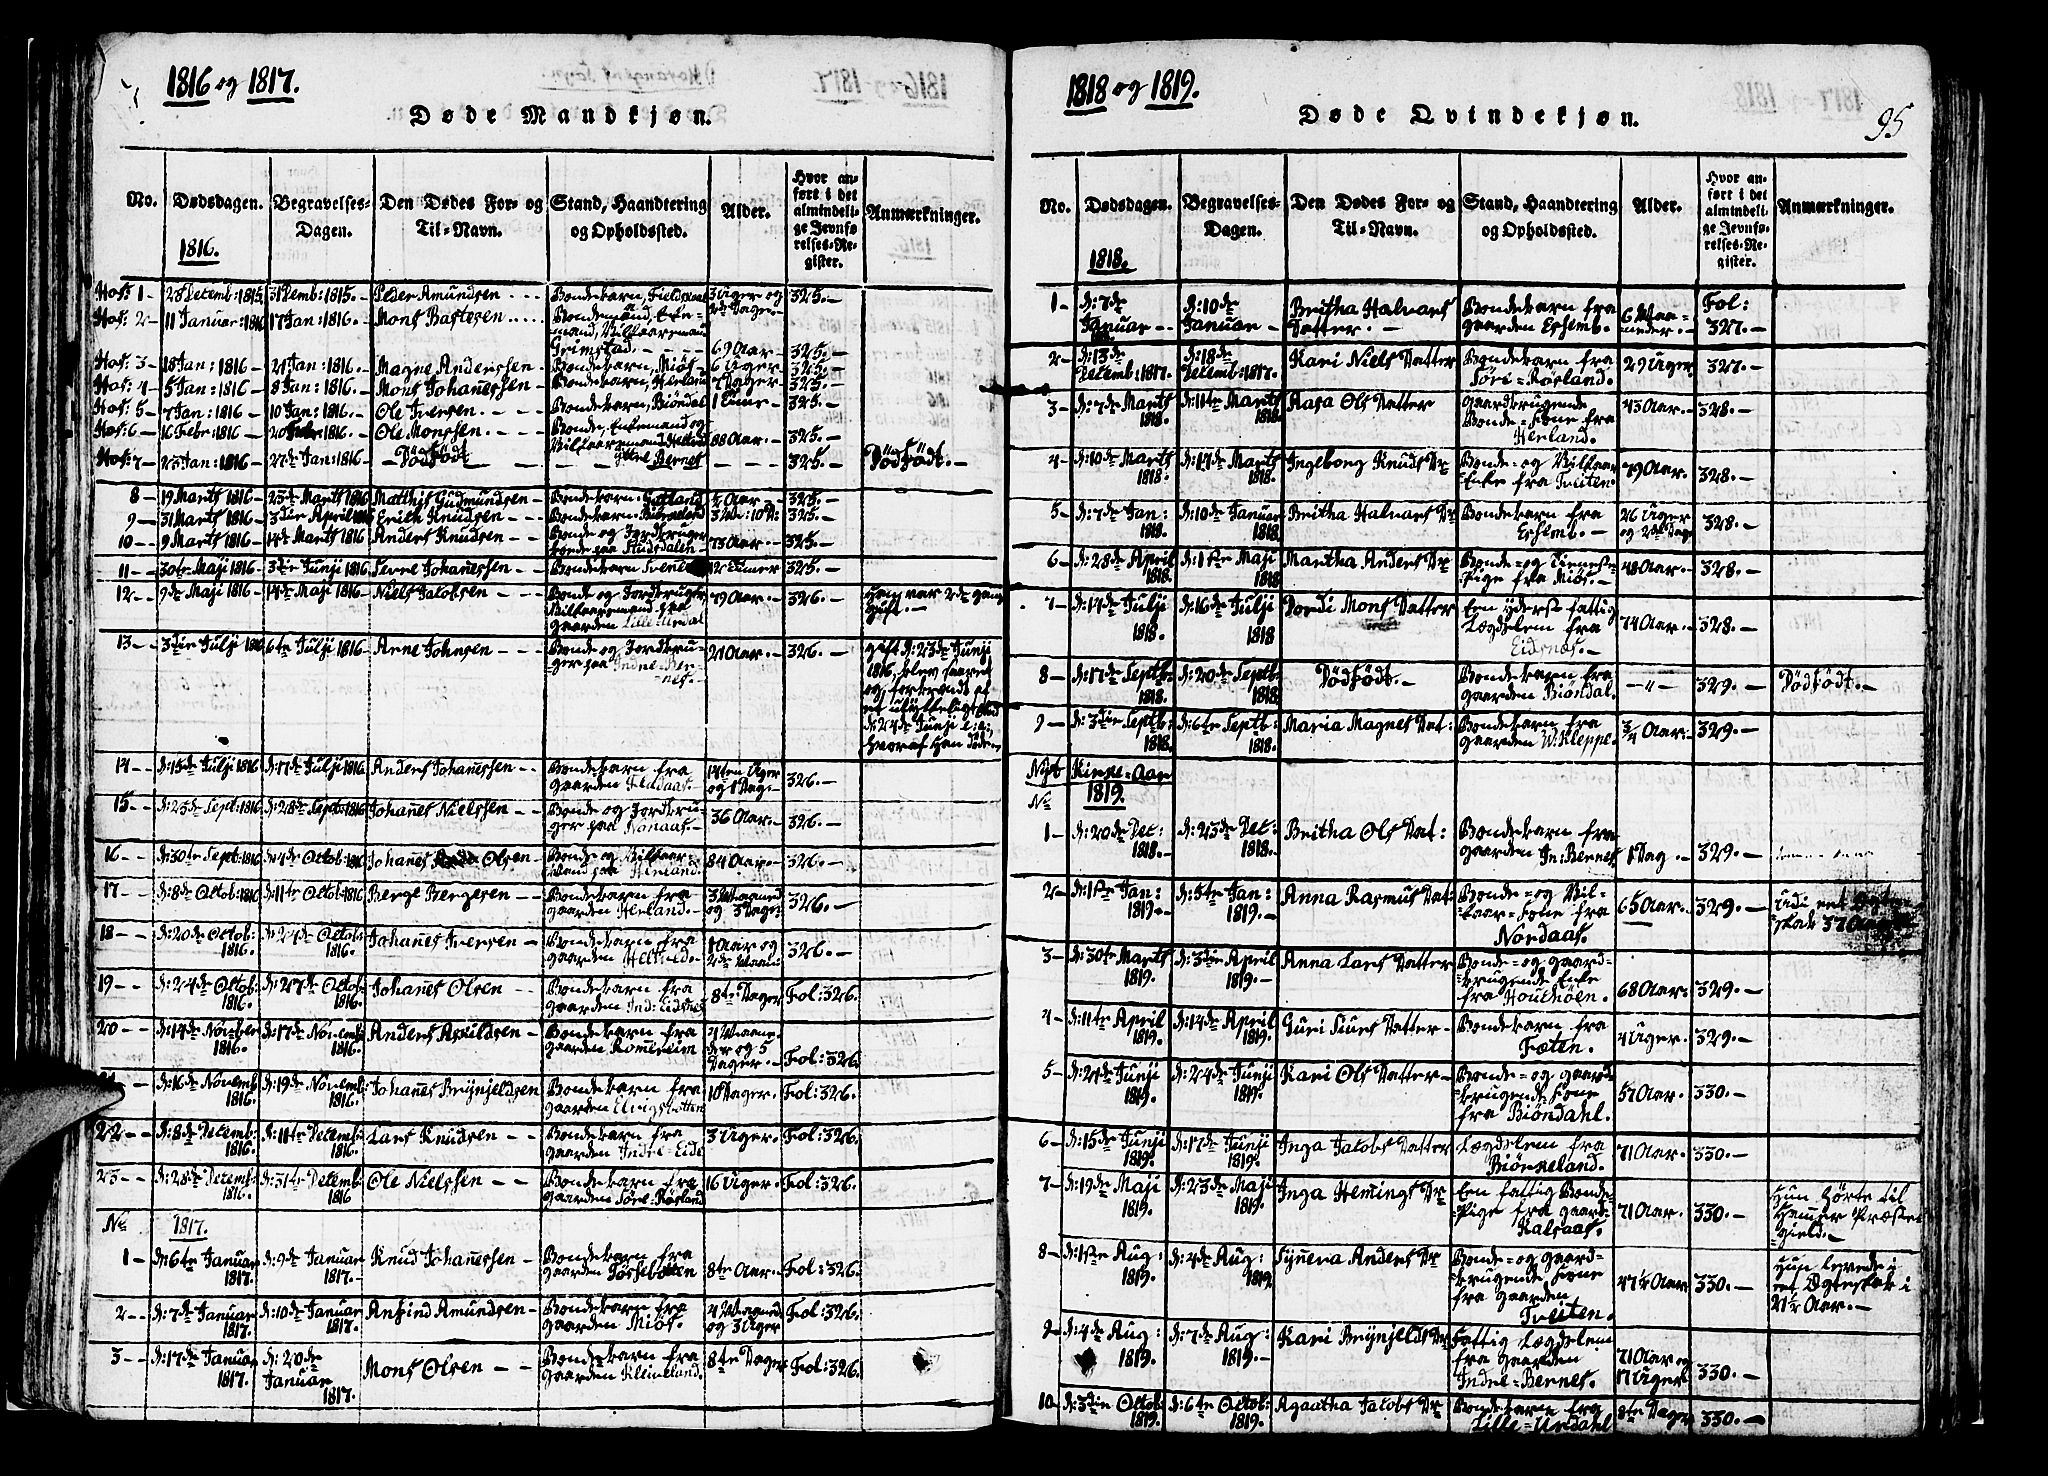 1816 og 1817.
Døde Mandkjøn.
No. Dødsdagen. Begravelses-Dagen. Den Dødes For- og Til-Navn. Stand, Haandtering og Opholdssted. Alder. Hvor anført i det almindelige Jevnførelses-Register. Anmærkninger.
1816.
Hos: 1 - 28 Decemb: 1815. 31 Demb: 1815. Peder Amundsen Bondebarn, 3 Uger og 2de Dage. 325.
Hos: 2 - 11 Januar: 1816 17 Jan: 1816. Mons Bastesen Bondemand, Enkemand, Vilkaarsmand Grimstad. 69 Aar 325.
Hos: 3 - 18 Jan: 1816 21 Jan: 1816. Magne Anderssen Bondebarn, Miøs 6 Uger 325.
Hos: 4 - 5 Jan: 1816 8 Jan: 1816. Mons Johanessen Bondebarn, Herland 7 Dager 325.
Hos: 5 - 7 Jan: 1816 10 Jan: 1816. Ole Iversen Bondebarn, Biøndal 1 Time 325.
Hos: 6 - 16 Febr: 1816 20 Febr: 1816. Ole Monssen Bonde, Enkemand og Vilkaarsmand 88 Aar 325.
Hos: 7 - 23 Jan: 1816 27de Jan: 1816 Dødfødt Yttre Bernes 325. Dødfødt.
8 - 19 Marts 1816 23de Marts 1816 Matthis Gudmundsen Bondebarn. Aar 325.
9 - 31 Marts 1816 3die April 1816 Erich Knudsen Bondebarn. 325.
10 - 9 Marts 1816 14de Marts 1816 Anders Knudsen Bonde og Jordbruger 73 Aar 325.
11 - 30te Maji 1816 3die Junji 1816 Johanessen Bondebarn 12 Timer 325.
12 - 9de Maji 1816 14de Maji 1816 Niels Jacobsen Bonde og Jordbruger, Vilkaarsmand paa Gaarden Lille-Urdal 79 Aar 326. Han var 2de gang gift.
13 - 3die Julji 1816 6te Julji 1816 Arne Johnsen Bonde og Jordbruger paa Indre-Bernes. 21 Aar 326. gift d: 23de Junji 1816, blev saaret og forbrændt af et ulykkeligt d: 24de Junji hvoraf Han Døde
14 - d: 15de Julji 1816 d: 17de Julji 1816 Anders Johanessen Bondebarn fra gaarden 14ten Uger og 1 Dag. 326.
15 - d: 23de Sept: 1816 d: 28de Sept: 1816 Johanes Nielssen Bonde og Jordbruger paa Nonaas. 36 Aar. 326.
16 - d: 30te Sept: 1816 d: 4de Octob: 1816 Johanes Olsen Bonde og Vilkaarsmand paa Herland. 84 Aar. 326.
17 - d: 8de Octob: 1816 d: 11te Octob: 1816 Berge Bergesen Bondebarn fra gaarden Herland. 3 Maaned og 3 Dager 326.
18 - d: 20de Octob: 1816. d: 24de Octob: 1816. Johanes Iversen Bondebarn fra gaarden 1 Aar og 2de Maan: 326.
19 - d: 24de Octob: 1816. d: 27de Octob: 1816. Johanes Olsen Bondebarn fra gaarden Ind: Eidsnes 8te Dager Fol: 326.
20 - d: 14de November 1816. d: 17de Novemb 1816. Anders Askildsen Bondebarn fra gaarden Romereim 4 Maaneder og 5 Dager. Fol: 326.
d: 16de Novemb: 1816. d: 19de Novemb: 1816. Johanes Brynjeldsen Bondebarn fra gaarden Elvigsbotten 10 Dager. Fol: 326.
22 - d: 8de Decemb: 1816. d: 11te Decemb: 1816. Lars Knudsen Bondebarn fra gaarden Indre-Eide 3 Uger. Fol: 326.
23 - d: 28de Decemb: 1816. d: 31te Decemb: 1816 Ole Nielssen Bondebarn fra gaarden Søre-Rørland 16 Uger. Fol: 326.
No 1817.
1 - d: 6te Januar 1817. d: 9de Januar 1817. Knud Johanessen Bondebarn fra gaarden 8te Aar. Fol: 326.
2 - d: 7de Januar 1817. d: 10de Januar 1817. Anfind Amundsen Bondebarn fra gaarden Miøs. 4 Maaned og 3 Uger Fol: 326.
3 - d: 17de Januar 1817. d: 20de Januar 1817. Mons Olsen Bondebarn fra gaarden Kleiveland. 8te Dager Fol: 326.
1818 og 1819.
95
Døde Qvindekjøn.
No. Dødsdagen. Begravelses-Dagen. Den Dødes For- og Til-Navn. Stand, Haandtering og Opholdssted. Alder. Hvor anført i det almindelige Jevnførelses-Register. Anmærkninger.
1818.
1 - d: 7de Januar d: 10de Januar Britha Halvars Datter Bondebarn fra gaarden 6 Maaneder. Fol: 327.
2 - d: 13de Decemb: 1817. d: 18de Decemb: 1817. Kari Niels Datter Bondebarn fra Søre-Rørland. 29 Uger. 327.
3 - d: 7de Marts 1818. d: 11te Marts 1818. Aasa Ols Datter Gaardbrugende Bonde-Kone fra Herland. 43 Aar. 328.
4 - d: 10de Marts 1818. d: 17de Marts 1818. Ingeborg Knuds Dr Bonde- og Vilkaar Enke fra Tveiten. 79 Aar. 328.
5 - d: 7de Jan: 1818. d: 10de Januar 1818. Britha Halvars Dr Bondebarn fra 26 Uger og 2de Dage 328.
6 - d: 28de April 1818. d: 1ste Maji 1818 Martha Anders Dr Bonde- og Tieneste-Pige fra Miøs. 48 Aar. 328.
7 - d: 14de Julji 1818. d: 16de Julji 1818 Dordi Mons Datter En yderst fattig Lægdslem fra Eidsnæs. 74 Aar. 328.
8 - d: 17de Septb: 1818. d: 20de Septb: 1818. Dødfødt. Bondebarn fra gaarden Biøndal. - " - 329. Dødfødt.
9 - d: 3die Septb: 1818. d: 6te Septb: 1818. Maria Magnes Dat: Bondebarn fra gaarden W: Kleppe. 3/4 Aar. 329.
Nyt Kirke-Aar
No 1819.
1 - d: 20de Dec: 1818. d: 23de Dec: 1818. Britha Ols Dat: Bondebarn fra gaarden In: Bernes 1 Dag. 329.
2 - d: 1ste Jan: 1819. d: 5te Jan: 1819. Anna Rasmus Dat: Bonde- og Vilkaar-Kone fra Nordaas. 65 Aar. 329.
3 - d: 30te Marts 1819. d: 3die April 1819. Anna Lars Datter Bonde- og gaardbrugende Enke fra 68 Aar. 329.
4 - d: 11te April 1819. d: 14de April 1819. Guri Siurs Datter Bondebarn fra Fæten. 4 Uger. 329.
5 - d: 21de Junji 1819. d: 24de Junji 1819. Kari Ols Datter Bonde- og gaardbrugende Kone fra Biøndahl. 57 Aar. 330.
6 - d: 15de Junji 1819. d: 17de Junji 1819. Inga Jacobs Datter Lægdslem fra Biørneland. 71 Aar. 330.
7 - d: 19de Maji 1819. d: 23de Maji 1819. Inga Hemings Dr En fattig Bonde-Pige fra gaard Kalsaas. 71 Aar. 330. Hun hørte til Hammer Præstegield.
8 - d: 1ste Aug: 1819. d: 4de Aug: 1819 Synneva Anders Dr Bonde- og Gaardbrugende Kone fra gaarden Tveiten. 47 1/2 Aar 330. Hun levede i eet Ægteskab i 21 1/2 Aar.
9 - d: 4de Aug: 1819. d: 7de Aug: 1819. Kari Brynjelds Dr Fattig Lægdslem fra gaarden Indre-Bernes. 71 Aar og 17 Uger. 330.
10 - d: 3die Octob 1819. d: 6te Octob: 1819. Agaatha Jacobs Dr Bondebarn fra Lille-Urdahl 8te Dager 330.